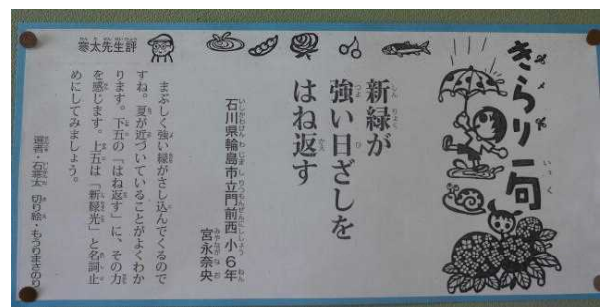 きらり一句
新緑が
強い日ざしを
はね返す
石川県輪島市立門前西小6年
宮永奈央
寒太先生評
まぶしく強い緑がさし込んでくるので
すね。夏が近づいていることがよくわか
ります。下五の「はね返す」に、その力
を感じます。上五は「新緑光」と名詞止
めにしてみましょう。
選者・石寒太 切り絵・もうりまさのり